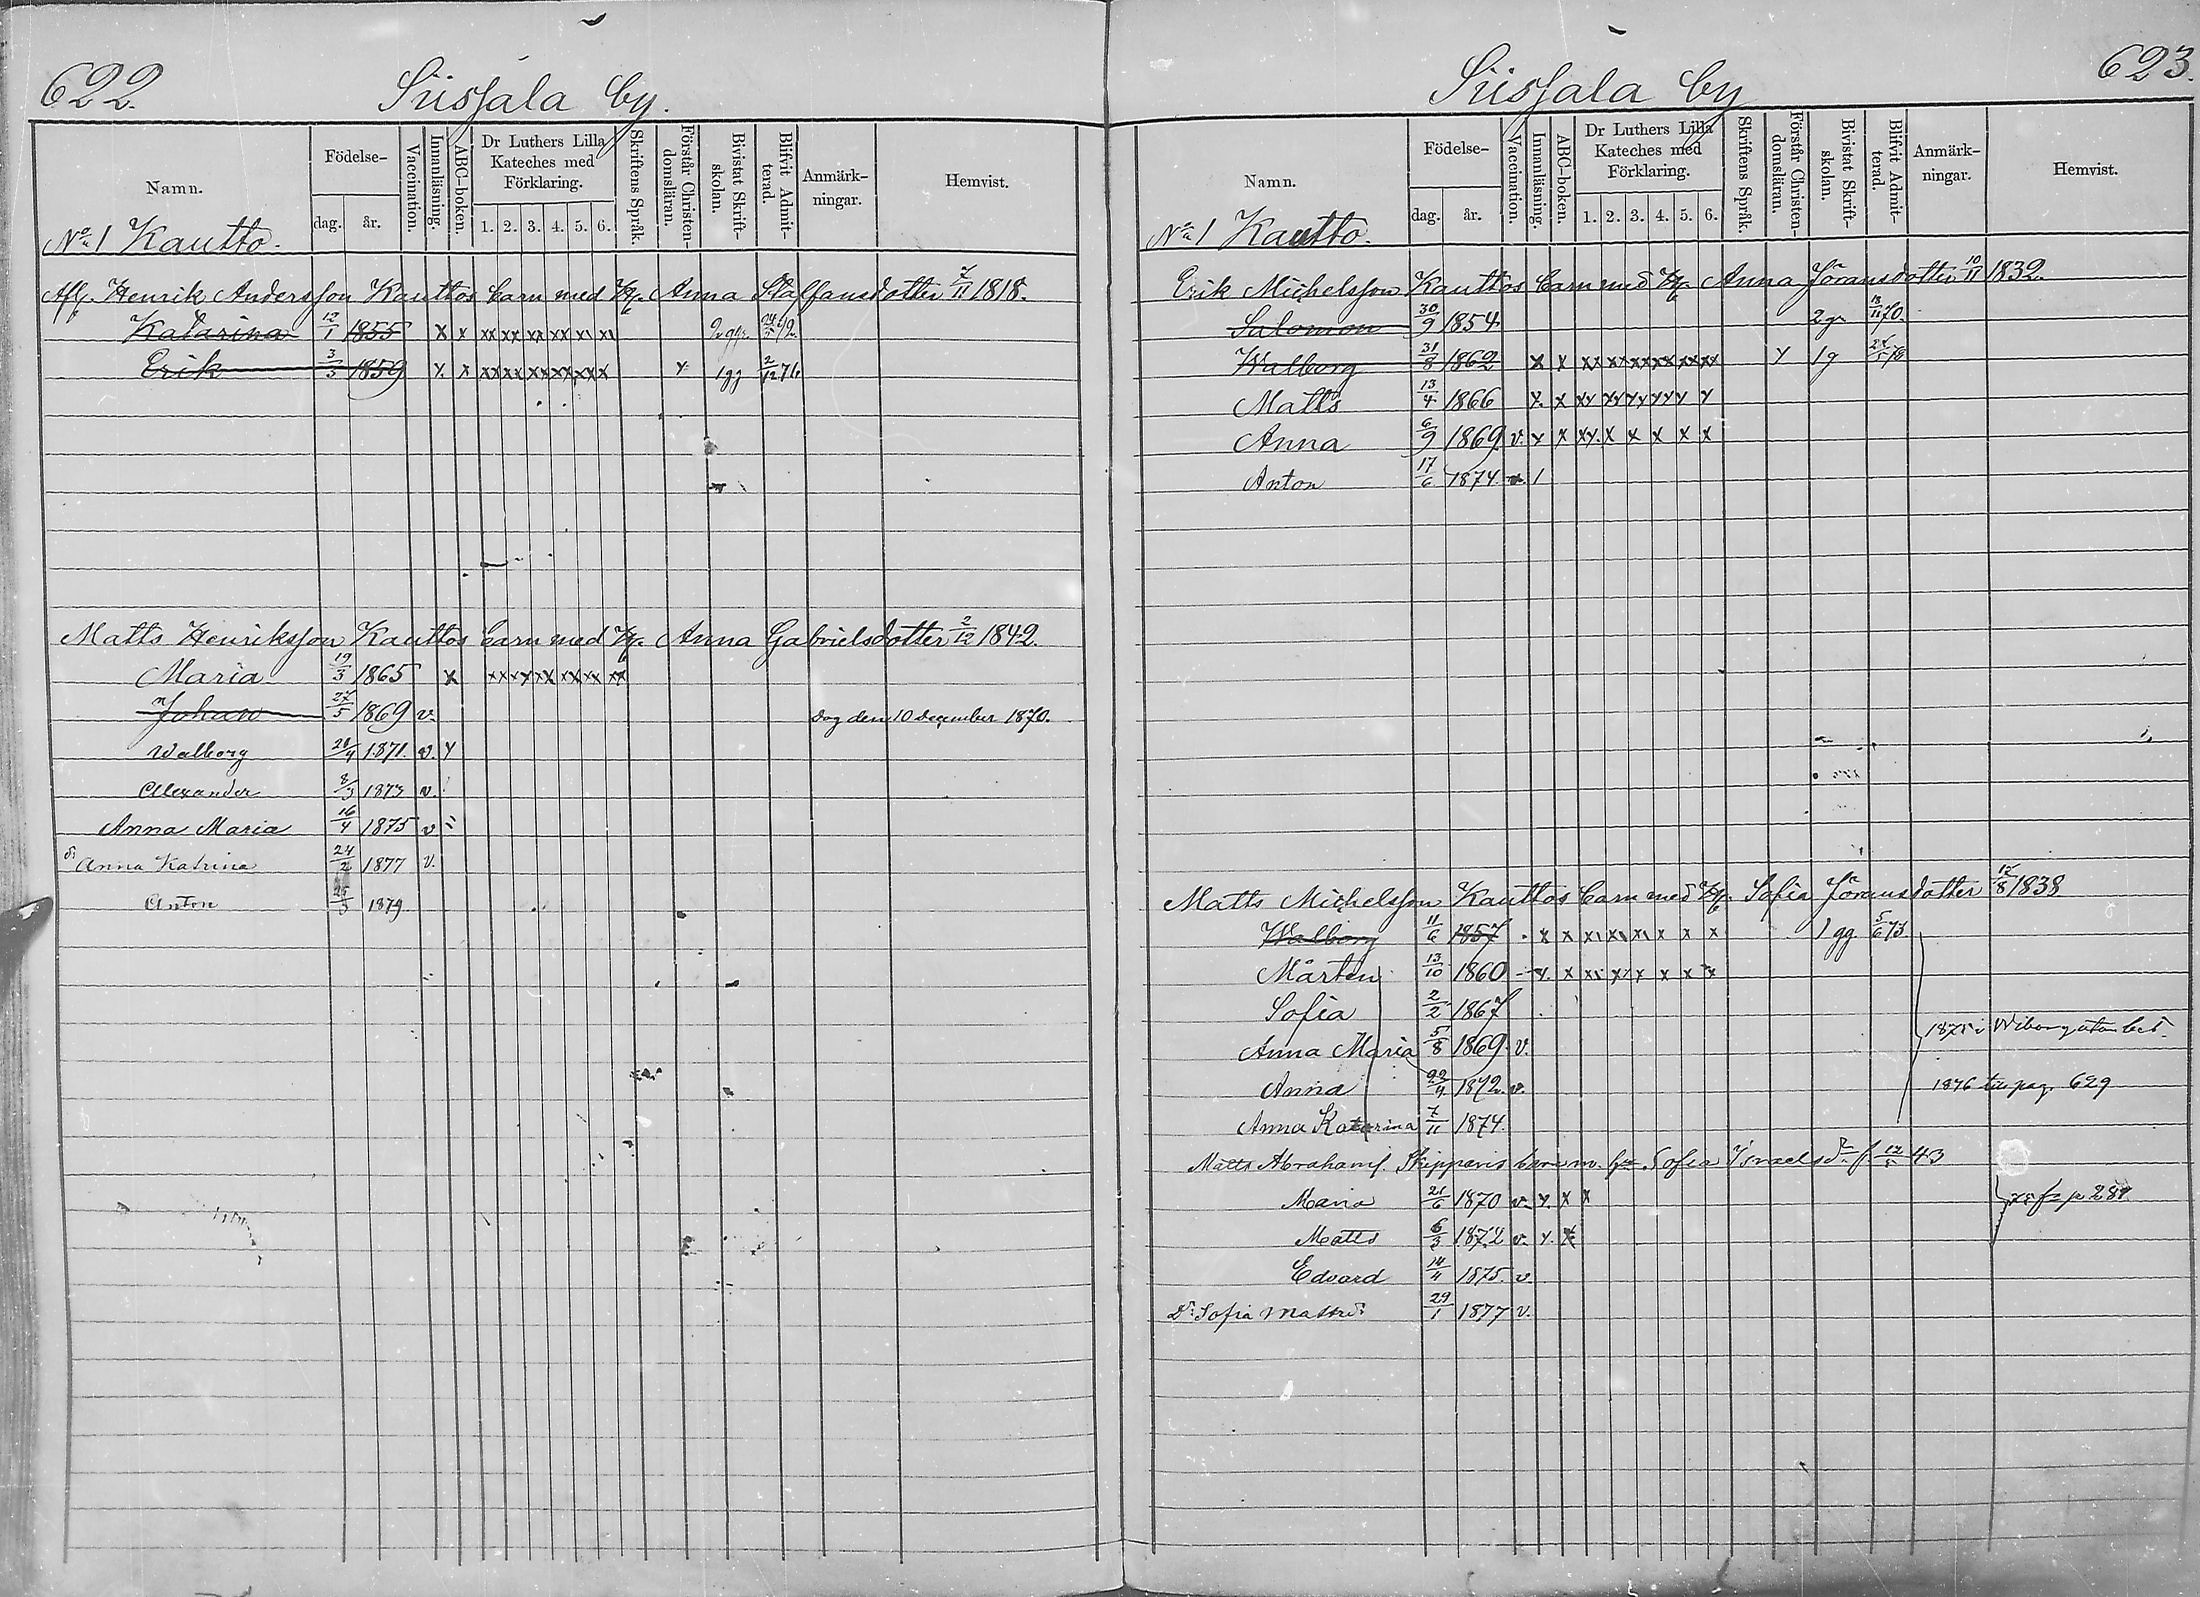 622.
Siisjala by.
Namn.
Födelse-
dag.
år.
Vaccination.
Innanläsning.
ABC-boken.
Dr Luthers Lilla
Kateches med
Förklaring.
1. 2. 3. 4. 5. 6.
Skriftens Språk.
Förstår Christen-
domsläran.
Bivistat Skrift-
skolan.
Blifvit Admit-
terad.
Anmärk-
ningar.
Hemvist.
No 1 Kautto.
Afl. Henrik Andersson Kauttos barn med H. Anna Staffansdotter 7/11 1818.
Katarina 12/1 1855 x x xx xx xx xx xx xx
Erik 3/3 1859 x x xx xx xx xx xx x x 1gg 2/12 76
Matts Henriksson Kauttos barn med H. Anna Gabrielsdotter 2/12 1842.
Maria 19/3 1865 x xx xx xx xx xx xx
Johan 27/5 1869 v. Dog den 10 December 1870.
Walborg 28/4 1871. v. x
Alexander 8/3 1873 v.
Anna Maria 16/4 1875 v
d: Anna Katrina 24/2 1877 v.
Anton 25/3 1879
623.
Siisjala by
Namn.
Födelse-
dag.
år.
Vaccination.
Innanläsning.
ABC-boken.
Dr Luthers Lilla
Kateches med
Förklaring.
1. 2. 3. 4. 5. 6.
Skriftens Språk.
Förstår Christen-
domsläran.
Bivistat Skrift-
skolan.
Blifvit Admit-
terad.
Anmärk-
ningar.
Hemvist.
No 1 Kautto.
Erik Michelsson Kauttos barn med H. Anna Jöransdotter 10/11 1832.
Salomon 30/9 1854 2 g 18/11 70.
Walborg 31/8 1862 x x xx xx xx xx xx xx x 1g
Matts 13/4 1866 x. x xx xx xx xx x x
Anna 6/9 1869 v. x x xx. x x x x x
Anton 17/6 1874 v. /
Matts Michelsson Kauttos barn med H. Sofia Jöransdotter 1838
Walborg 11/6 1857 x x x x x x x x 1 gg 5/6 73.
Mårten 13/10 1860 x. x x x x x x x
Sofia 2/2 1867
1875 i Wiborg utan bet.
Anna Maria 5/8 1869. v.
Anna 22/4 1872. v. 1876 till pag. 629
Anna Katarina 7/11 1874.
Matts Abrahamss. Skipparis barn m. Sofia Israelsdr f. 43
Maria 21/6 1870 v. x. x x
Matts 6/3 1872 v. x. x
Edvard 14/4 1875. v.
Dr: Sofia Mattsd: 29/1 1877 v.